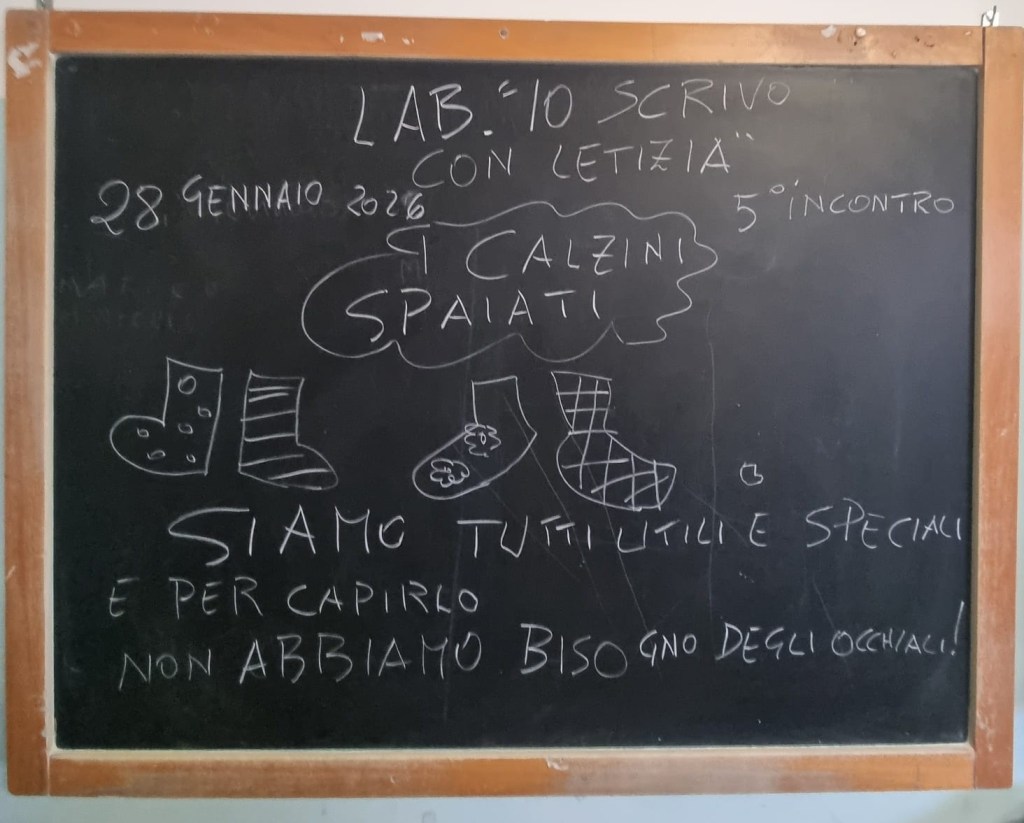 LAB. "IO SCRIVO
CON LETIZIA"
28 GENNAIO 2026
5° INCONTRO
I CALZINI
SPAIATI
SIAMO TUTTI UTILI E SPECIALI
E PER CAPIRLO
NON ABBIAMO BISOGNO DEGLI OCCHIALI!